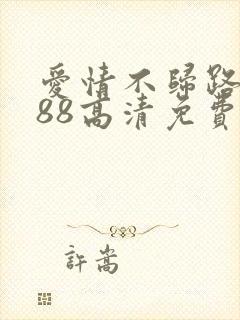 愛情不歸路
88高清免費
許嵩